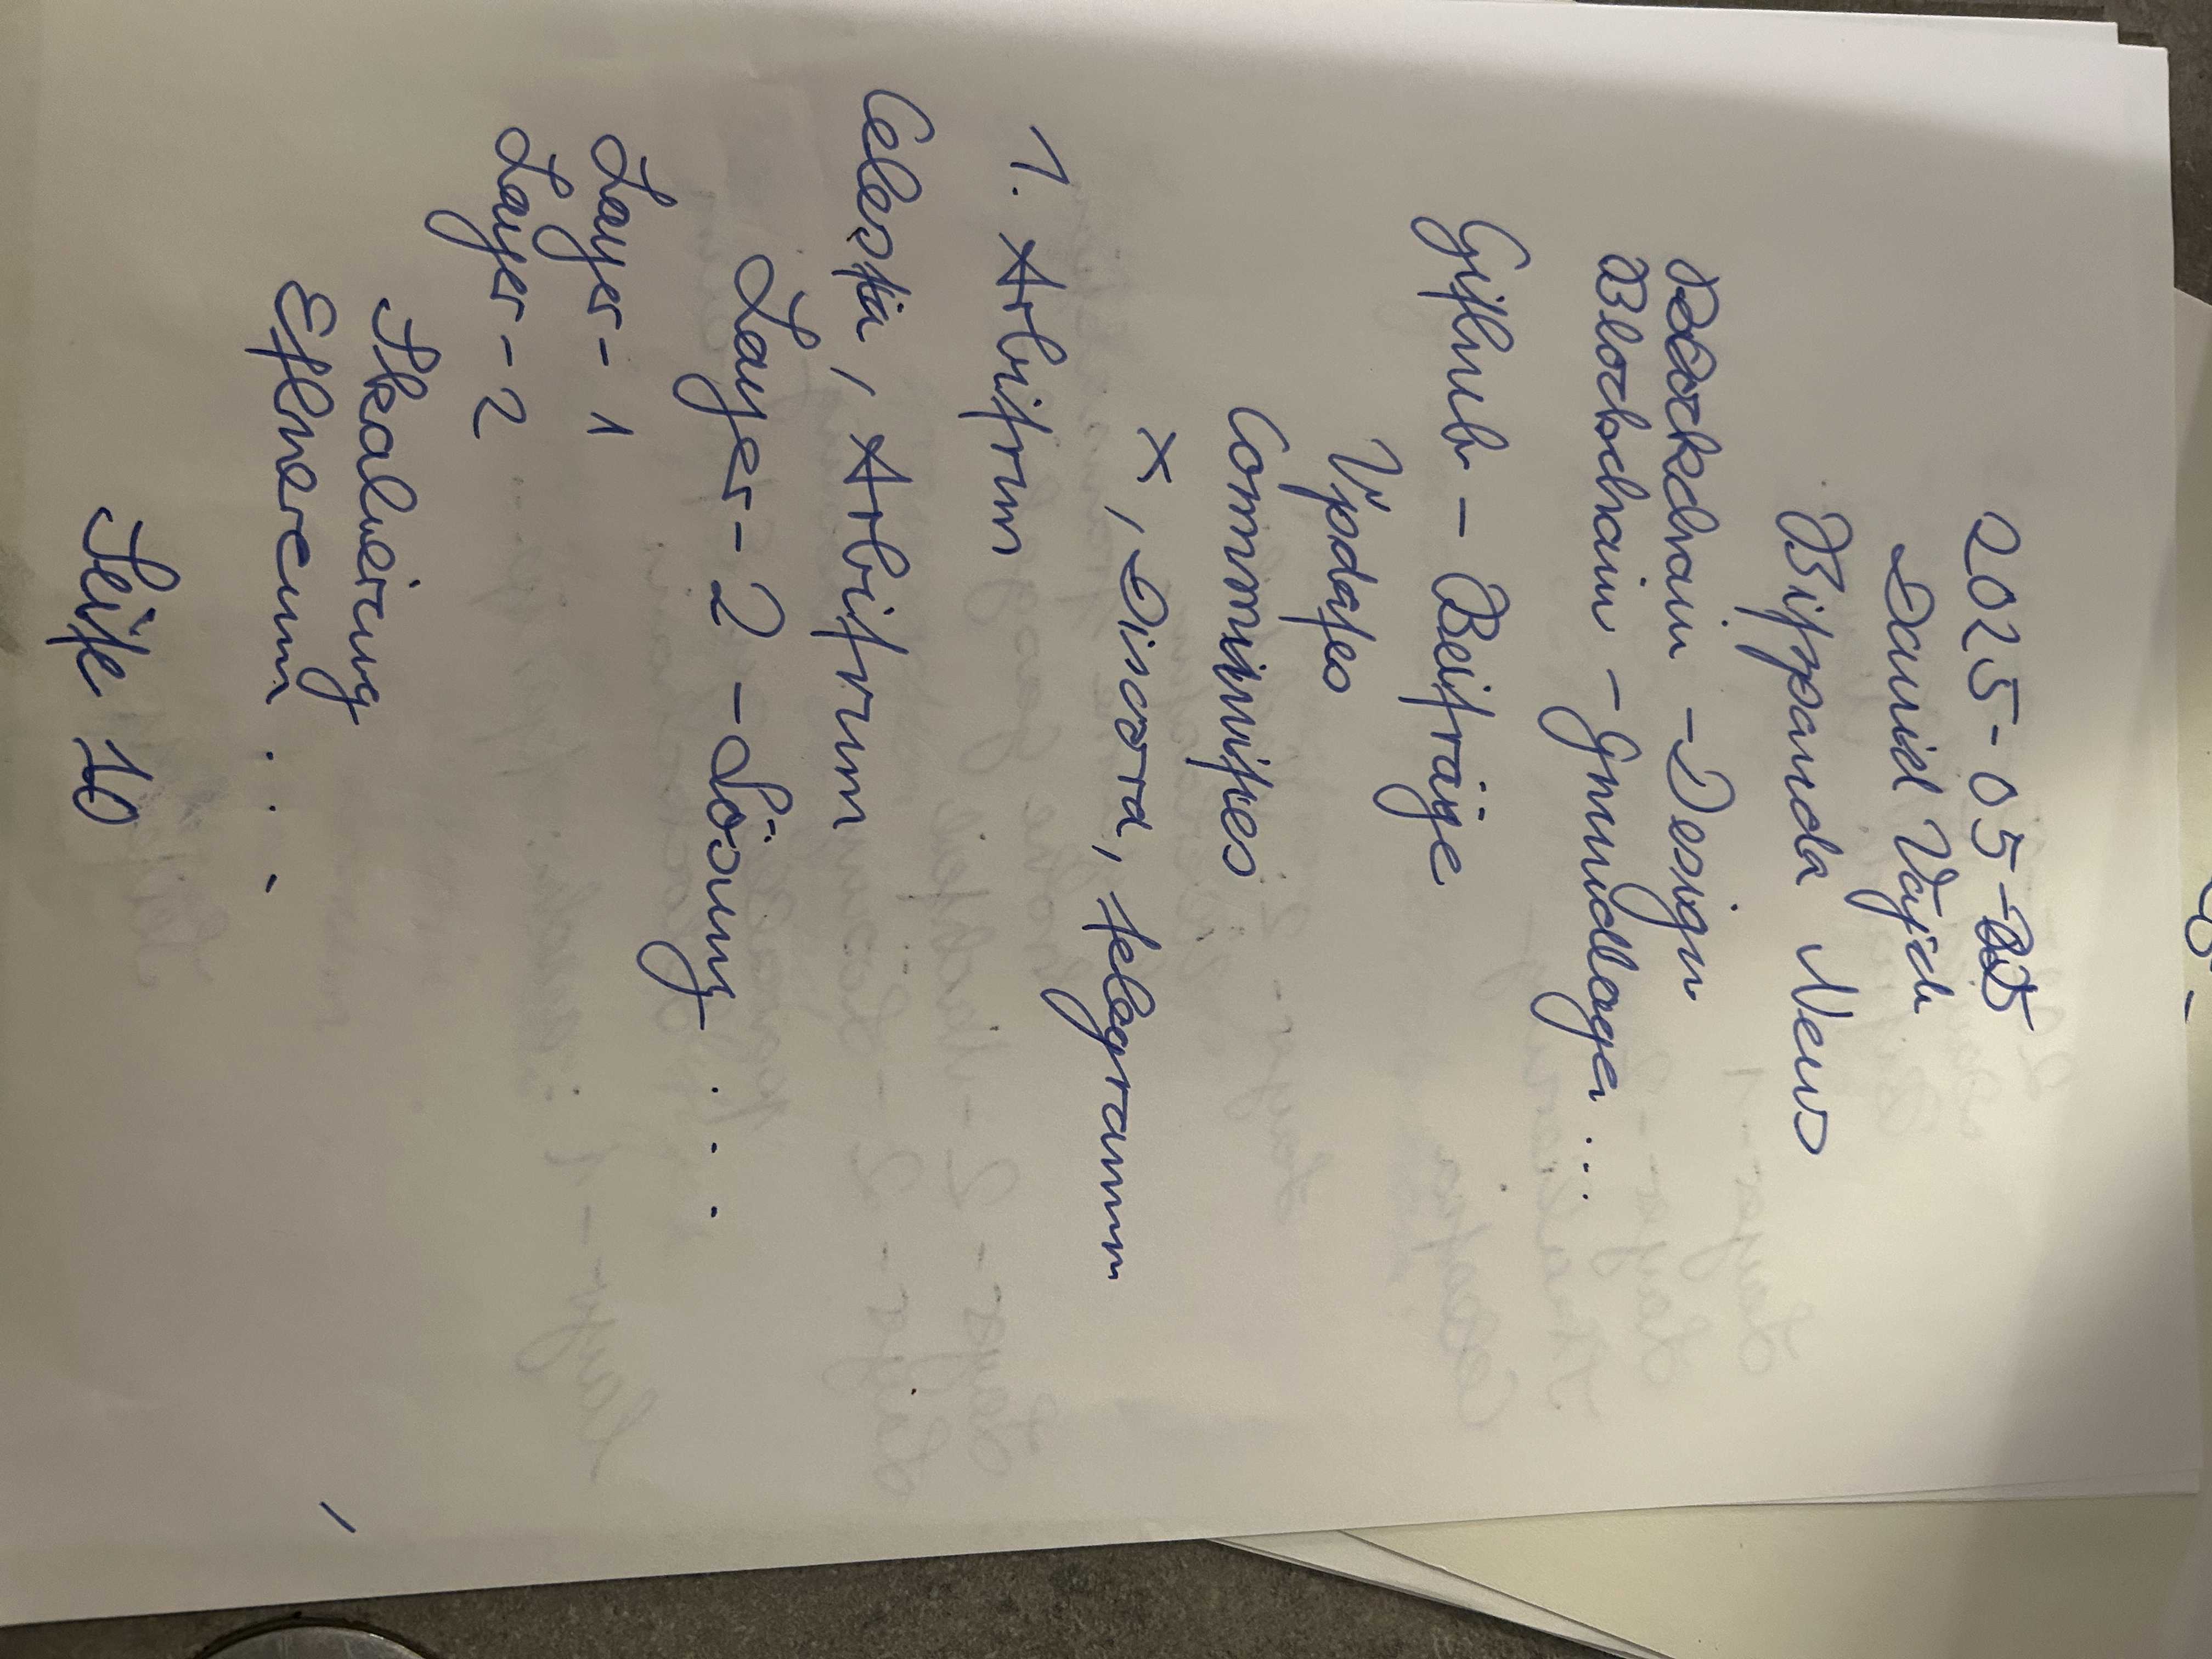 2025-05-25
David Vajda
Bitpanda News
Blockchain - Design
Blockchain - Grundlagen...
Github - Beiträge
Updates
Communities
X, Discord, telegramm
1. Arbitrum
Celestia, Arbitrum
Layer-2-Lösung...
Layer-1
Layer-2
Skalierung
Ethereum...
Seite 10